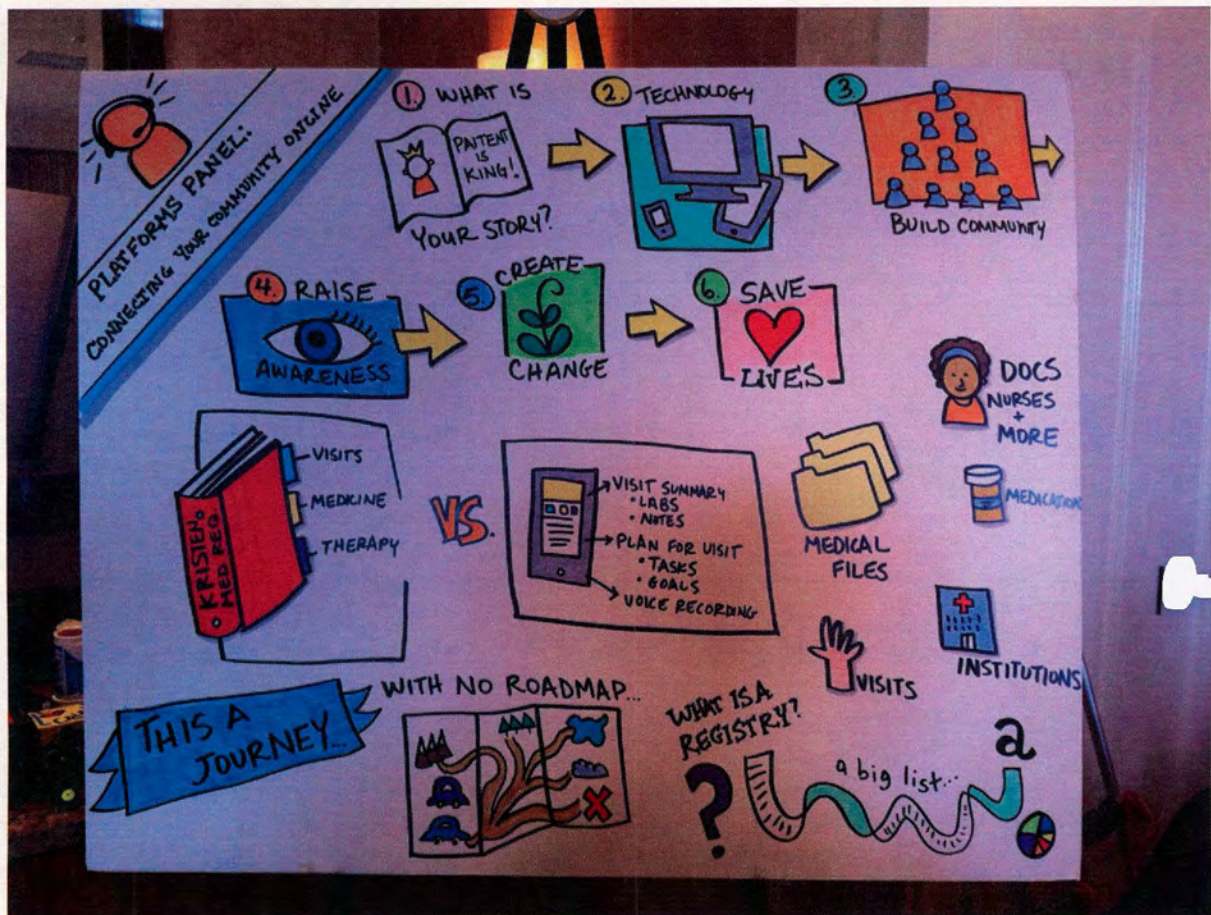 PLATFORMS PANEL:
CONNECTING YOUR COMMUNITY ONLINE
1. WHAT IS
PAITENT
IS
KING!
YOUR STORY?
2. TECHNOLOGY
3.
BUILD COMMUNITY
4. RAISE
AWARENESS
5. CREATE
CHANGE
6. SAVE
LIVES
KRISTEN.
MED REQ.
VISITS
MEDICINE
THERAPY
VS.
VISIT SUMMARY
• LABS
• NOTES
PLAN FOR VISIT
• TASKS
• GOALS
VOICE RECORDING
DOCS
NURSES
+
MORE
MEDICAL
FILES
MEDICATION
VISITS
INSTITUTIONS
THIS A
JOURNEY...
WITH NO ROADMAP...
WHAT IS A
REGISTRY?
?
a big list...
a